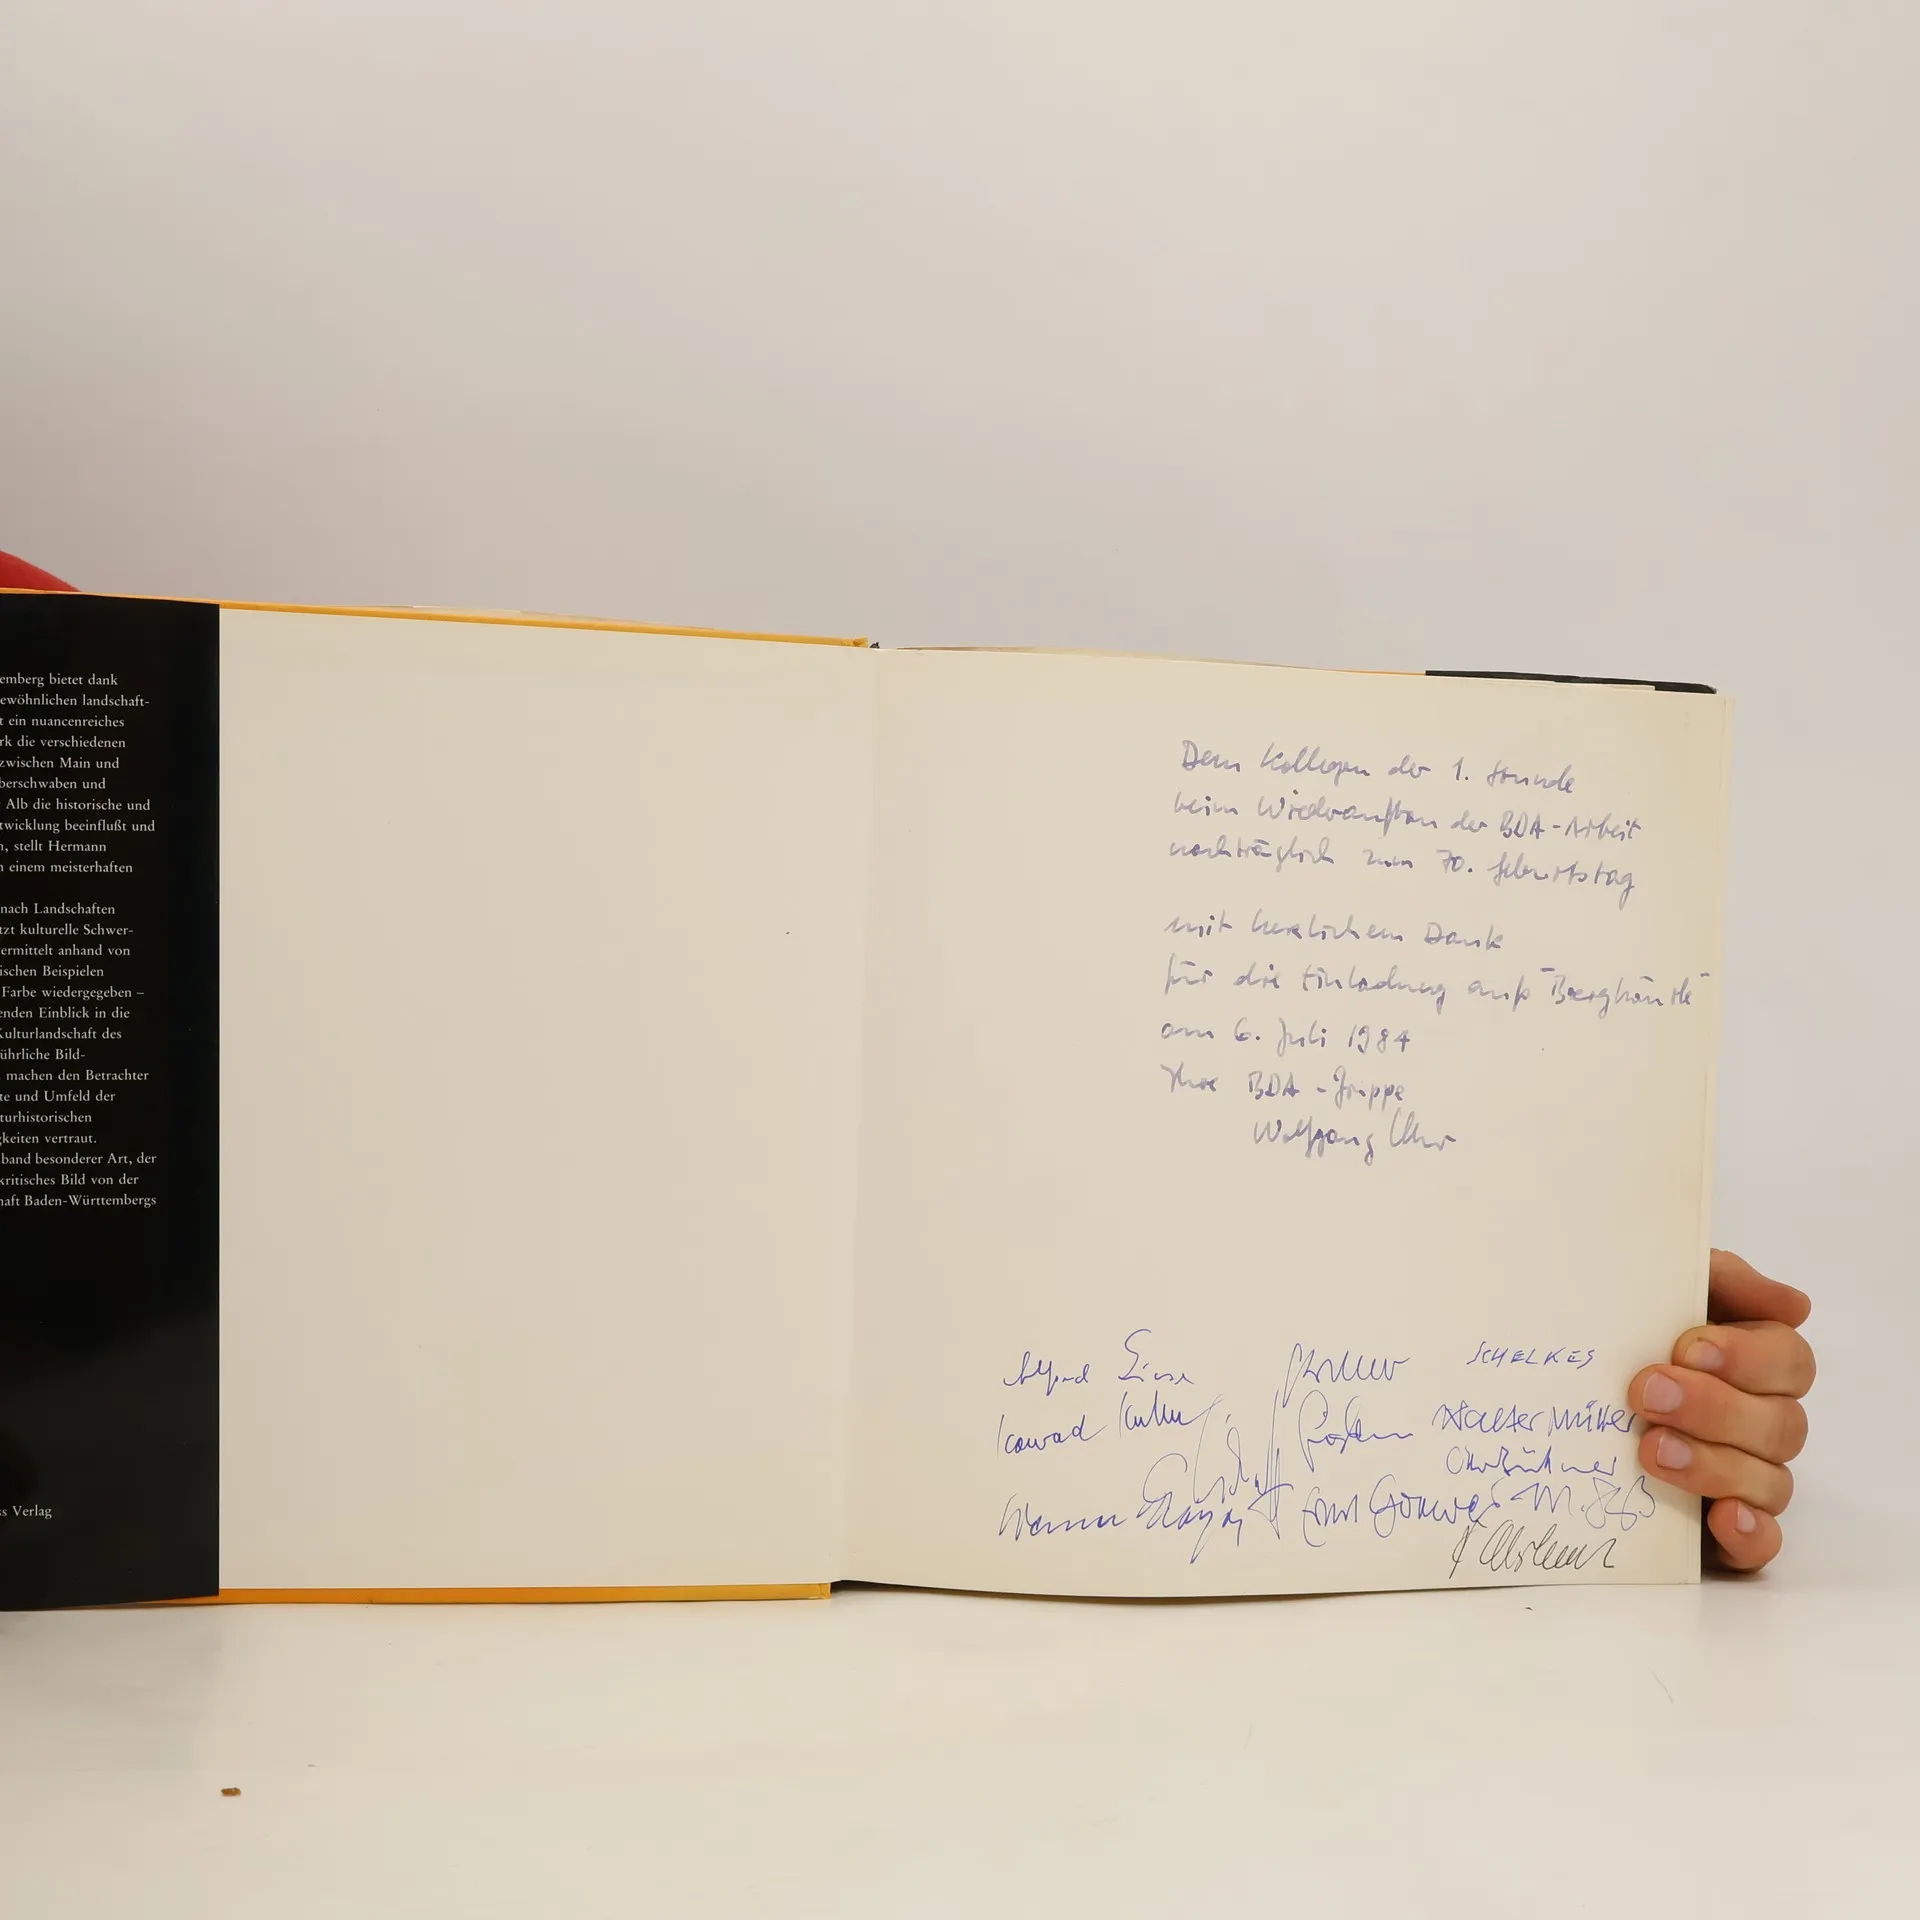 emberg bietet dank
ewöhnlichen landschaft-
t ein nuancenreiches
rk die verschiedenen
zwischen Main und
berschwaben und
Alb die historische und
twicklung beeinflußt und
n, stellt Hermann
n einem meisterhaften
nach Landschaften
tzt kulturelle Schwer-
ermittelt anhand von
ischen Beispielen
Farbe wiedergegeben –
enden Einblick in die
Kulturlandschaft des
ührliche Bild-
machen den Betrachter
te und Umfeld der
turhistorischen
gkeiten vertraut.
band besonderer Art, der
kritisches Bild von der
haft Baden-Württembergs
s Verlag
Dem Kollegen der 1. Stunde
beim Wiederaufbau der BDA-Arbeit
nachträglich zum 70. Geburtstag
mit herzlichem Dank
für die Einladung aufs "Berghäusle"
am 6. Juli 1984
Ihre BDA-Gruppe
Wolfgang
Alfred
SCHELKES
Konrad
Walter Müller
Werner
Ernst